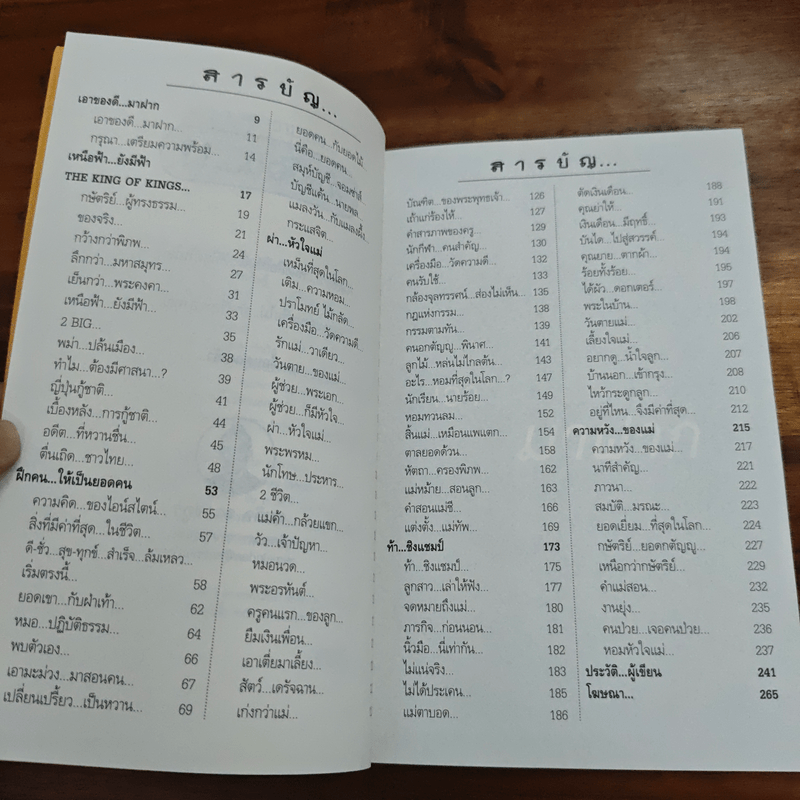 สารบัญ...
เอาของดี...มาฝาก 9
เอาของดี...มาฝาก... 11
กรุณา...เตรียมความพร้อม... 14
เหนือฟ้า...ยังมีฟ้า
THE KING OF KINGS... 17
กษัตริย์...ผู้ทรงธรรม... 19
ของจริง... 21
กว้างกว่า...พิภพ... 24
ลึกกว่า...มหาสมุทร... 27
เย็นกว่า...พระคงคา... 31
เหนือฟ้า...ยังมีฟ้า... 33
2 BIG... 35
พม่า...ปล้นเมือง... 38
ทำไม...ต้องมีศาสนา...? 39
ญี่ปุ่นกู้ชาติ... 41
เบื้องหลัง...การกู้ชาติ... 44
อดีต...ที่หวานชื่น... 45
ตื่นเถิด...ชาวไทย... 48
ฝึกคน...ให้เป็นยอดคน 53
ความคิด...ของไอน์สไตน์... 55
สิ่งที่มีค่าที่สุด...ในชีวิต... 57
ดี-ชั่ว...สุข-ทุกข์...สำเร็จ...ล้มเหลว...
เริ่มตรงนี้... 58
ยอดเขา...กับฝ่าเท้า... 62
หมอ...ปฏิบัติธรรม... 64
พบตัวเอง... 66
เอามะม่วง...มาสอนคน... 67
เปลี่ยนเปรี้ยว...เป็นหวาน... 69
ยอดคน...กับยอดไม้
นี่คือ...ยอดคน...
สมุห์บัญชี...จอมซ่าส์
บัญชีแค้น...นายพล
แมลงวัน...กับแมลงผึ้ง
กระแสจิต...
ผ่า...หัวใจแม่
เหม็นที่สุดในโลก...
เติม...ความหอม...
ปราโมทย์ ไม้กลัด...
เครื่องมือ...วัดความดี...
รักแม่...วาเดียว...
วันตาย...ของแม่...
ผู้ช่วย...พระเอก...
ผู้ช่วย...ก็มีหัวใจ...
ผ่า...หัวใจแม่...
พระพรหม...
นักโทษ...ประหาร...
2 ชีวิต...
แม่ค้า...กล้วยแขก...
วัว...เจ้าปัญหา...
หมอนวด...
พระอรหันต์...
ครูคนแรก...ของลูก...
ยืมเงินเพื่อน...
เอาเตี่ยมาเลี้ยง...
สัตว์...เดรัจฉาน...
เก่งกว่าแม่...
สารบัญ...
บัณฑิต...ของพระพุทธเจ้า... 126
เถ้าแก่ร้องไห้... 127
คำสารภาพของครู... 129
นักกีฬา...คนสำคัญ... 130
เครื่องมือ...วัดความดี... 132
คนรับใช้... 133
กล้องจุลทรรศน์...ส่องไม่เห็น... 135
กฎแห่งกรรม... 138
กรรมตามทัน... 139
คนอกตัญญู...พินาศ... 141
ลูกไม้...หล่นไม่ไกลต้น... 143
อะไร...หอมที่สุดในโลก...? 147
นักเรียน...นายร้อย... 149
หอมทวนลม... 152
สิ้นแม่...เหมือนแพแตก... 154
ตาลยอดด้วน... 158
หัตถา...ครองพิภพ... 162
แม่หม้าย...สอนลูก... 163
คำสอนแม่ชี... 166
แต่งตั้ง...แม่ทัพ... 169
ท้า...ชิงแชมป์ 173
ท้า...ชิงแชมป์... 175
ลูกสาว...เล่าให้ฟัง... 177
จดหมายถึงแม่... 180
ภารกิจ...ก่อนนอน... 181
นิ้วมือ...นี่เท่ากัน... 182
ไม่แน่จริง... 183
ไม่ได้ประเคน... 185
แม่ตาบอด... 186
ตัดเงินเดือน... 188
คุณย่าให้... 191
เงินเดือน...มีฤทธิ์... 193
บันได...ไปสู่สวรรค์... 194
คุณยาย...ตากผ้า... 194
ร้อยทั้งร้อย... 195
ได้ผัว...ดอกเตอร์... 197
พระในบ้าน... 198
วันตายแม่... 202
เลี้ยงใจแม่... 206
อยากดู...น้ำใจลูก... 207
บ้านนอก...เข้ากรุง... 208
ไหว้กระดูกลูก... 210
อยู่ที่ไหน...จึงมีค่าที่สุด... 212
ความหวัง...ของแม่ 215
ความหวัง...ของแม่... 217
นาทีสำคัญ... 221
ภาวนา... 222
สมบัติ...มรณะ... 223
ยอดเยี่ยม...ที่สุดในโลก... 224
กษัตริย์...ยอดกตัญญู... 227
เหนือกว่ากษัตริย์... 229
คำแม่สอน... 232
งานยุ่ง... 235
คนป่วย...เจอคนป่วย... 236
หอมหัวใจแม่... 237
ประวัติ...ผู้เขียน 241
โฆษณา... 265